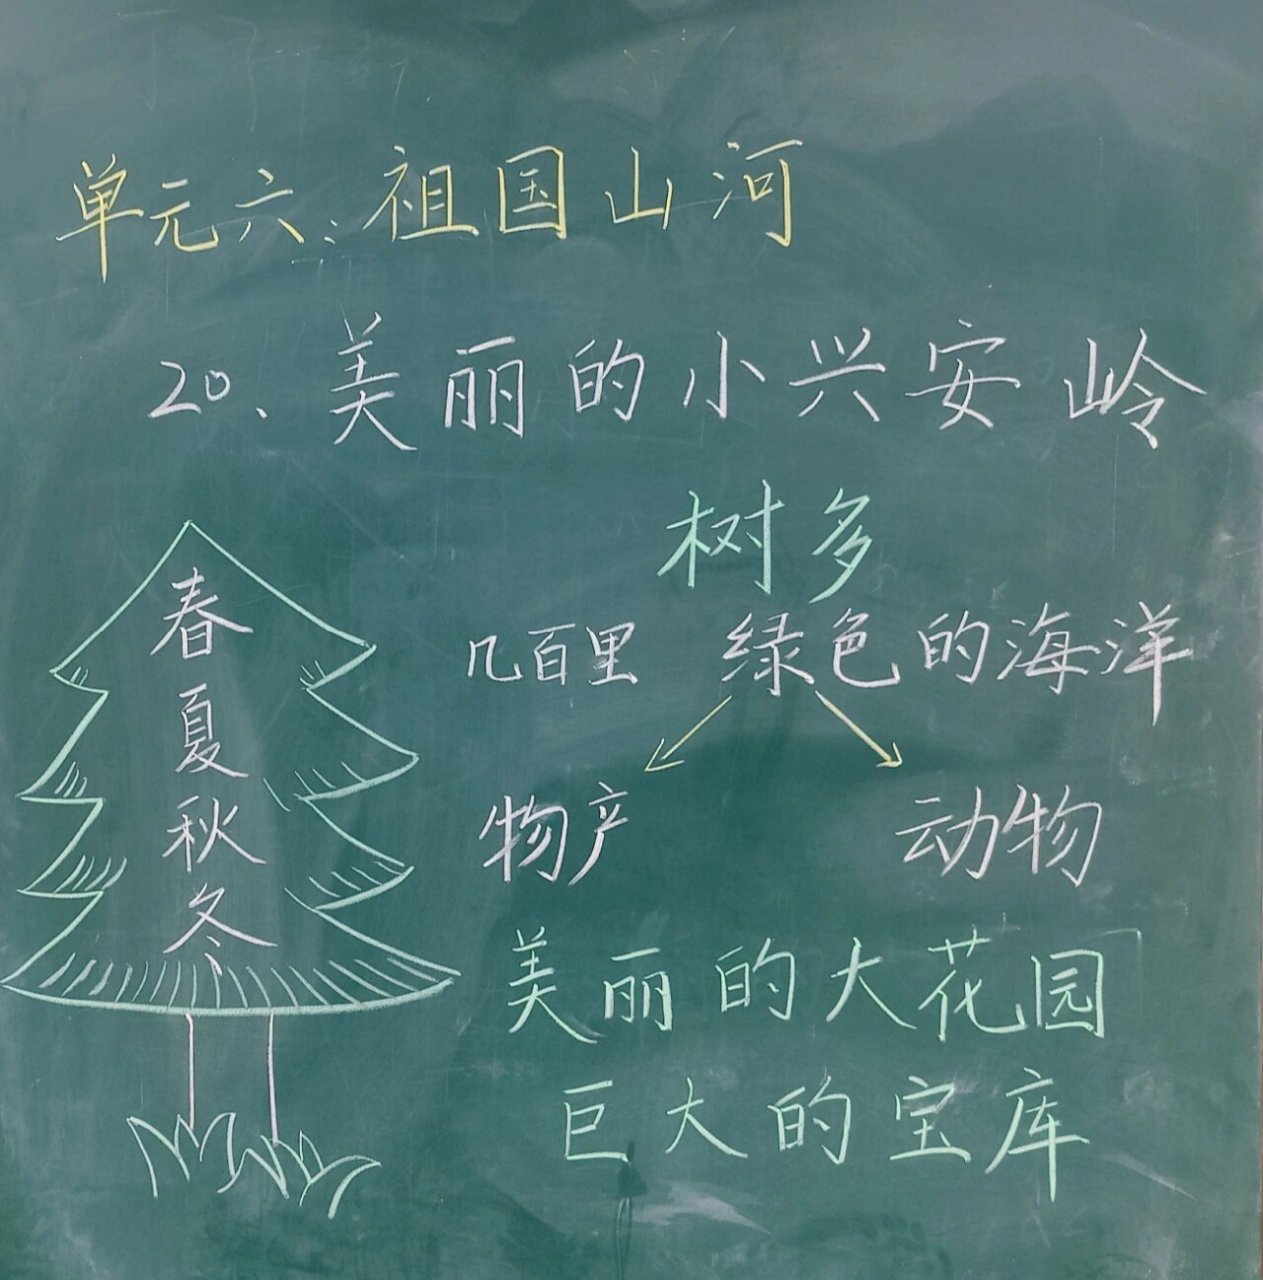 单元六:祖国山河
20、美丽的小兴安岭
树多
几百里 绿色的海洋
春
夏
秋
冬
物产 动物
美丽的大花园
巨大的宝库